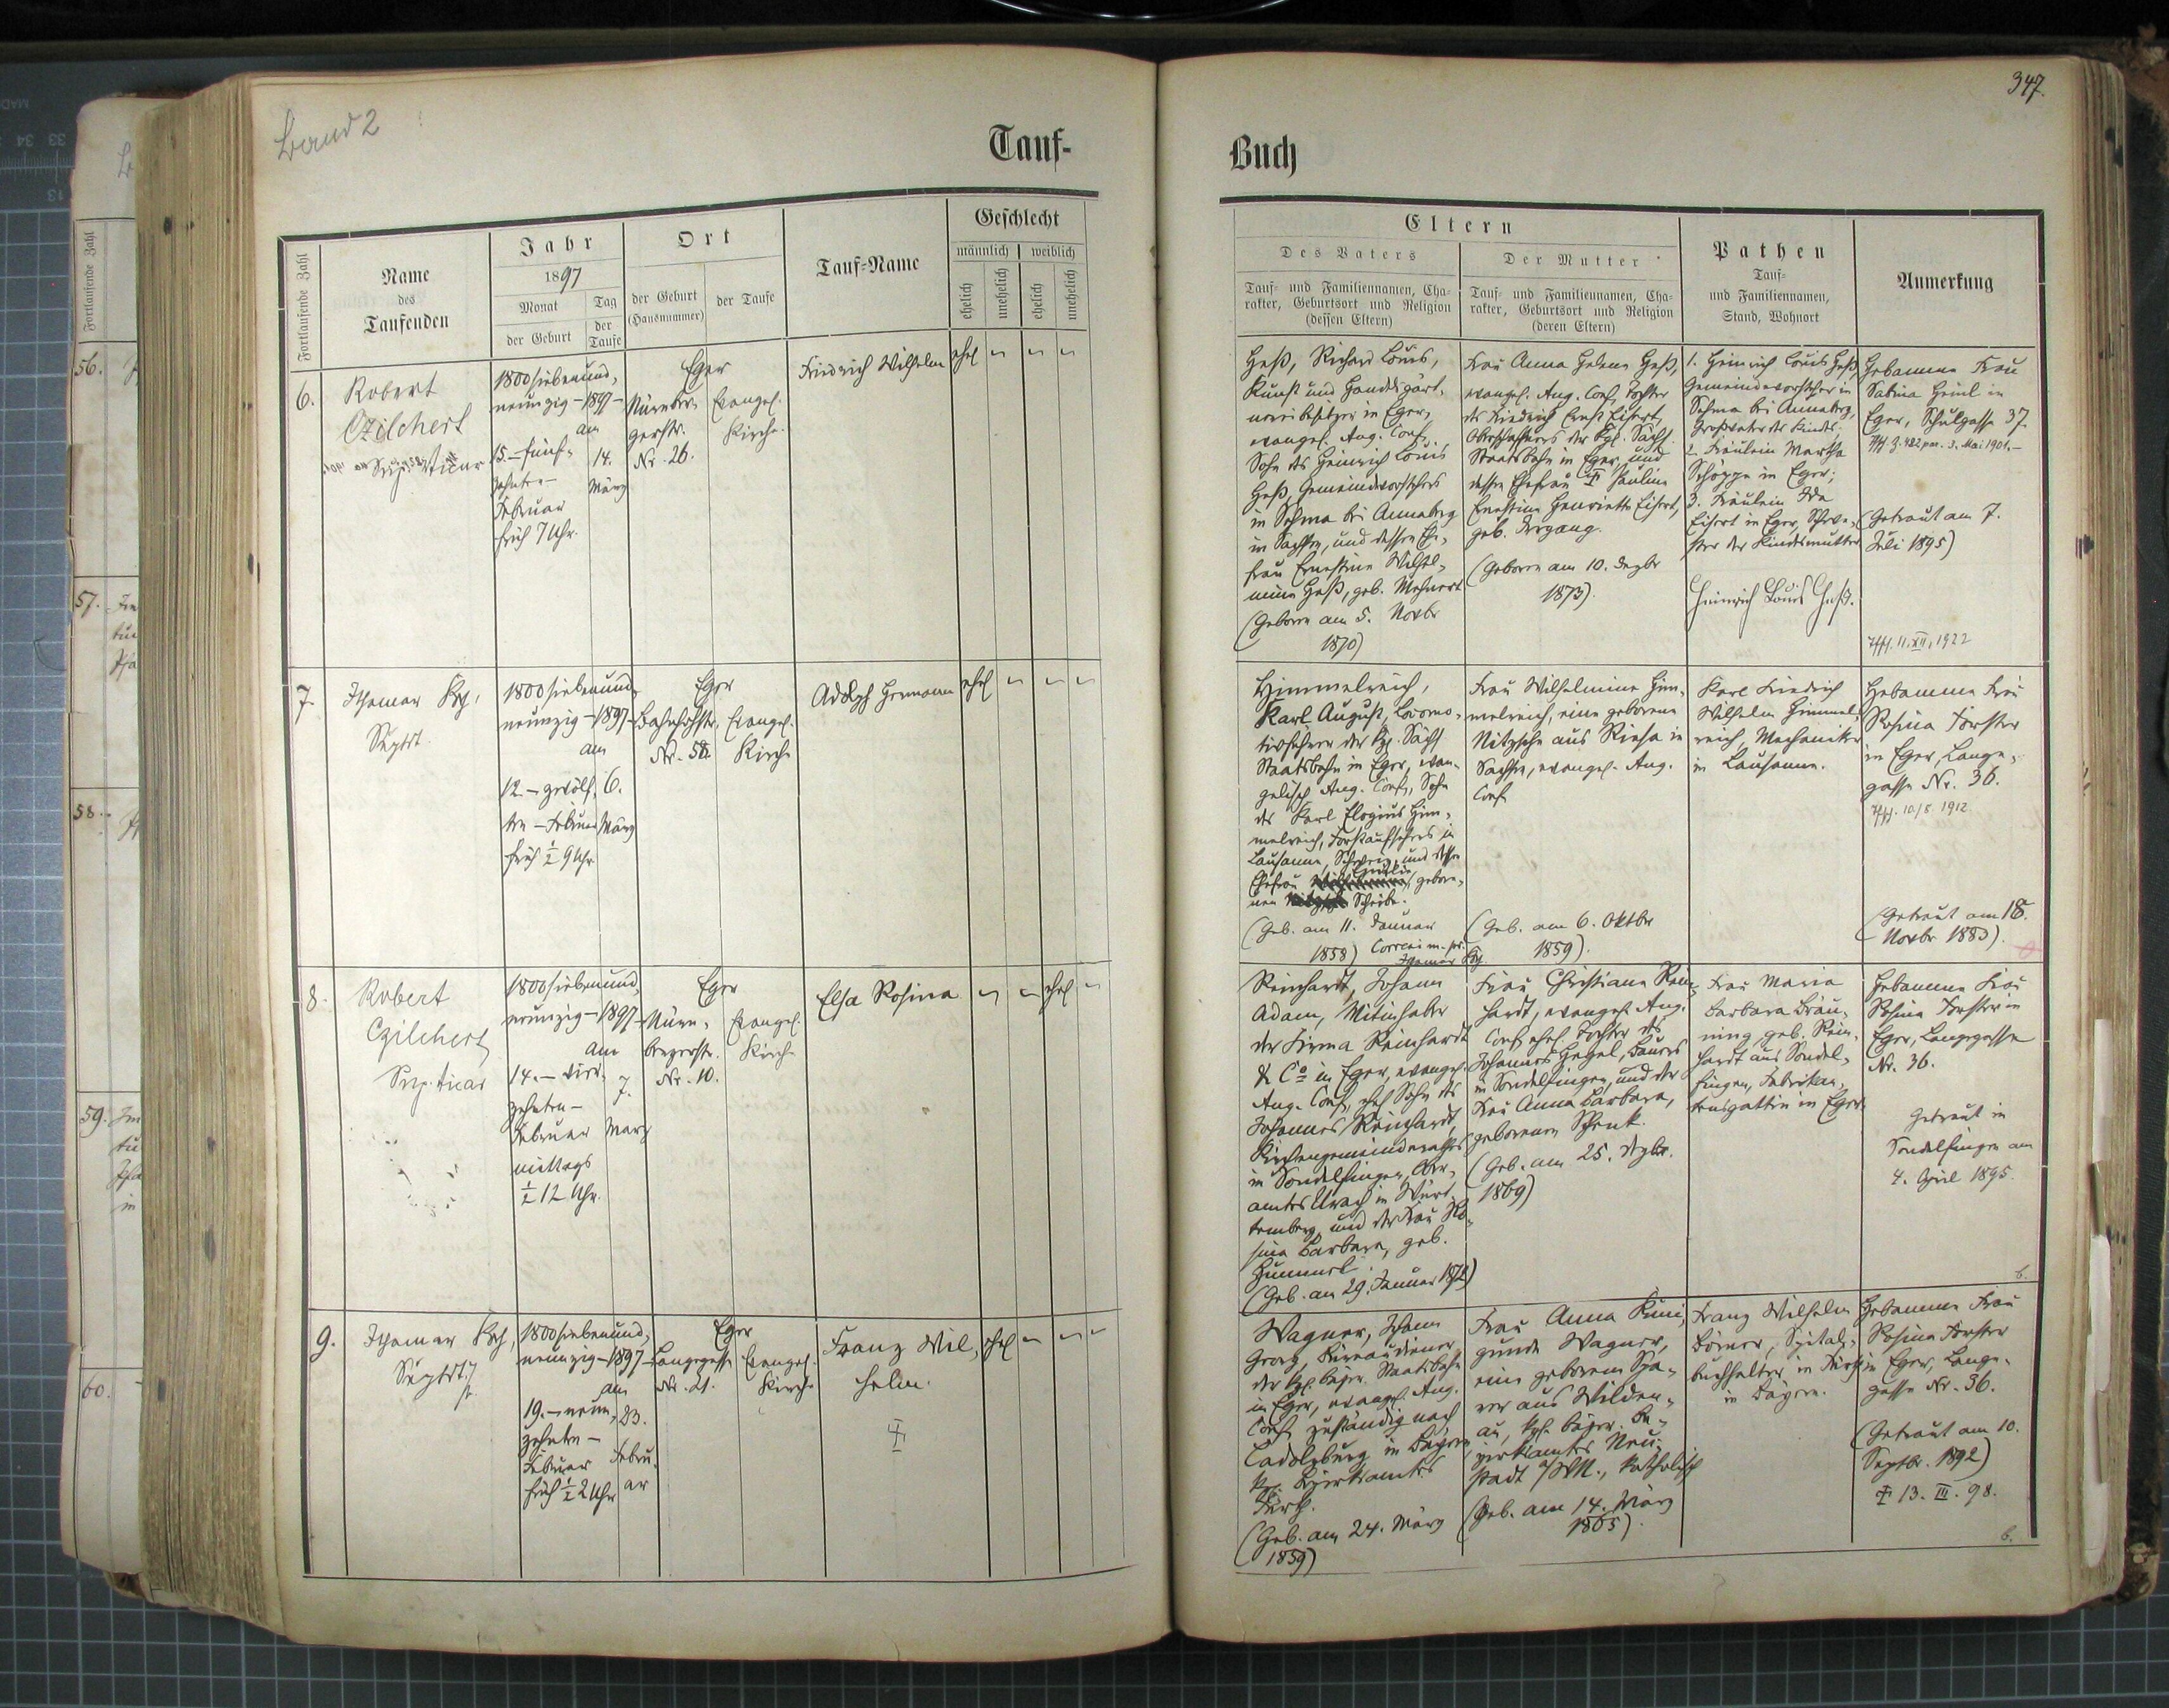 Band 2
347.
Tauf-
Buch
Fortlaufende Zahl
Name
des
Taufenden
Jahr
1897
Monat
Tag
der Geburt
der
Taufe
Ort
der Geburt
(Hausnummer)
der Taufe
Tauf-Name
Geschlecht
männlich
weiblich
ehelich
unehelich
ehelich
unehelich
Eltern
Des Vaters
Tauf- und Familiennamen, Cha-
rakter, Geburtsort und Religion
(dessen Eltern)
Der Mutter
Tauf- und Familiennamen, Cha-
rakter, Geburtsort und Religion
(deren Eltern)
Pathen
Tauf-
und Familiennamen,
Stand, Wohnort
Anmerkung
6.
Robert
Czilchert
1800siebenund-
neunzig - 1897 -
am
15. - fünf-
zehnten -
Februar
früh 7 Uhr.
14.
März
Eger
Nürnber-
gerstr.
Nr. 26.
Evangel.
Kirche.
Friedrich Wilhelm
ehel
Heß, Richard Louis,
Kunst und Handelsgärt-
nereibesitzer in Eger,
evangel. Aug. Conf.,
Sohn des Heinrich Louis
Heß, Gemeindevorstehers
in Sehma bei Annaberg
in Sachsen, und dessen Ehe-
frau Ernestine Wilhel-
mine Heß, geb. Mehnert
(Geboren am 5. Novbr
1870)
Frau Anna Helene Heß,
evangel. Aug. Conf., Tochter
des Friedrich Ernst Eisert,
Oberschaffners der Kgl. Sächs.
Staatsbahn in Eger, und
dessen Ehefrau Pauline
Ernestine Henriette Eisert,
geb.
(Geboren am 10. Dezbr
1873).
1. Heinrich Louis Heß,
Gemeindevorsteher in
Sehma bei Annaberg,
Großvater des Kindes.
2. Fräulein Martha
Schöppe in Eger;
3. Fräulein Ida
Eisert in Eger, Schwe-
ster der Kindesmutter
Heinrich Louis Heß.
Hebamme Frau
Sabina Heinl in
Eger, Schulgasse 37.
3. Mai 1901. -
(Getraut am 7.
Juli 1895)
11. XII. 1922
7.
Ithamar Koch,
Septrt.
1800siebenund-
neunzig - 1897 -
am
12. - zwölf-
ten - Februar
früh ½ 9 Uhr
6.
März
Eger
Bahnhofstr.
Evangel.
Kirche
Adolph Hermann
ehel
Himmelreich,
Karl August, Locomo-
tivführer der Kgl. Sächs
Staatsbahn in Eger, evan-
gelisch Aug. Conf., Sohn
des Karl Elogius Him-
melreich, Forstaufsehers in
Lausanne, Schweiz, und dessen
Ehefrau Emilie, gebore-
nen Scheibe.
(Geb. am 11. Januar
1858)
Frau Wilhelmine Him-
melreich, eine geborene
Nitzsche aus Riesa in
Sachsen, evangel. Aug.
Conf.
(Geb. am 6. Oktbr
1859).
Karl Friedrich
Wilhelm Himmel-
reich, Mechaniker
in Lausanne.
Hebamme Frau
Rosina Forster
in Eger, Lange-
gasse Nr. 36.
10/8. 1912.
(Getraut am 18.
Novbr 1883).
8.
Robert
Czilchert,
Sup. Vicar
1800siebenund-
neunzig - 1897 -
am
14. - vier-
zehnten -
Februar
mittags
½ 12 Uhr.
7.
März
Eger
Nürn-
bergerstr.
Nr. 10.
Evangel.
Kirche
Elsa Rosina
ehel
Reinhardt, Johann
Adam, Mitinhaber
der Firma Reinhardt
& Co in Eger, evangel.
Aug. Conf., ehel. Sohn des
Johannes Reinhardt,
Kirchengemeinderathes
in Sondelfingen, Ober-
amtes Urach in Würt-
temberg, und der Frau Ro-
sina Barbara, geb.
Hummel
(Geb. am 29. Januar 1872)
Frau Christiane Rein-
hardt, evangel. Aug.
Conf., ehel. Tochter des
Johannes Hezel, Bauers
in Sondelfingen, und der
Frau Anna Barbara,
geborenen Schenk.
(Geb. am 25. Dezbr.
1869)
Frau Maria
Barbara Bräu-
ning, geb. Rein-
hardt aus Sondel-
fingen, Fabrikan-
tensgattin in Eger.
Hebamme Frau
Rosina Forster in
Eger, Langegasse
Nr. 36.
Getraut in
Sondelfingen am
4. April 1895.
9.
Ithamar Koch,
Septrt.
1800siebenund-
neunzig - 1897 -
am
19. - neun-
zehnten -
Februar
früh ½ 2 Uhr
23.
Febru-
ar
Eger
Langegasse
Nr. 21.
Evangel.
Kirche
Franz Wil-
helm.
ehel
Wagner, Johann
Georg, Bureaudiener
der Kgl. bayer. Staatsbahn
in Eger, evangel. Aug.
Conf., zuständig nach
Cadolzburg in Bayern,
kgl. Bezirksamtes
Fürth.
(Geb. am 24. März
1859)
Frau Anna Kuni-
gunde Wagner,
eine geborene
aus Wilden-
au, kgl. bayer. Be-
zirksamtes Neu-
stadt a/WN., katholisch
(Geb. am 14. März
1865).
Franz Wilhelm
Börner, Spital-
buchhalter in Fürth
in Bayern.
Hebamme Frau
Rosina Forster
in Eger, Lange-
gasse Nr. 36.
(Getraut am 10.
Septbr. 1892)
† 13. III. 98.
56.
57.
58.
59.
60.